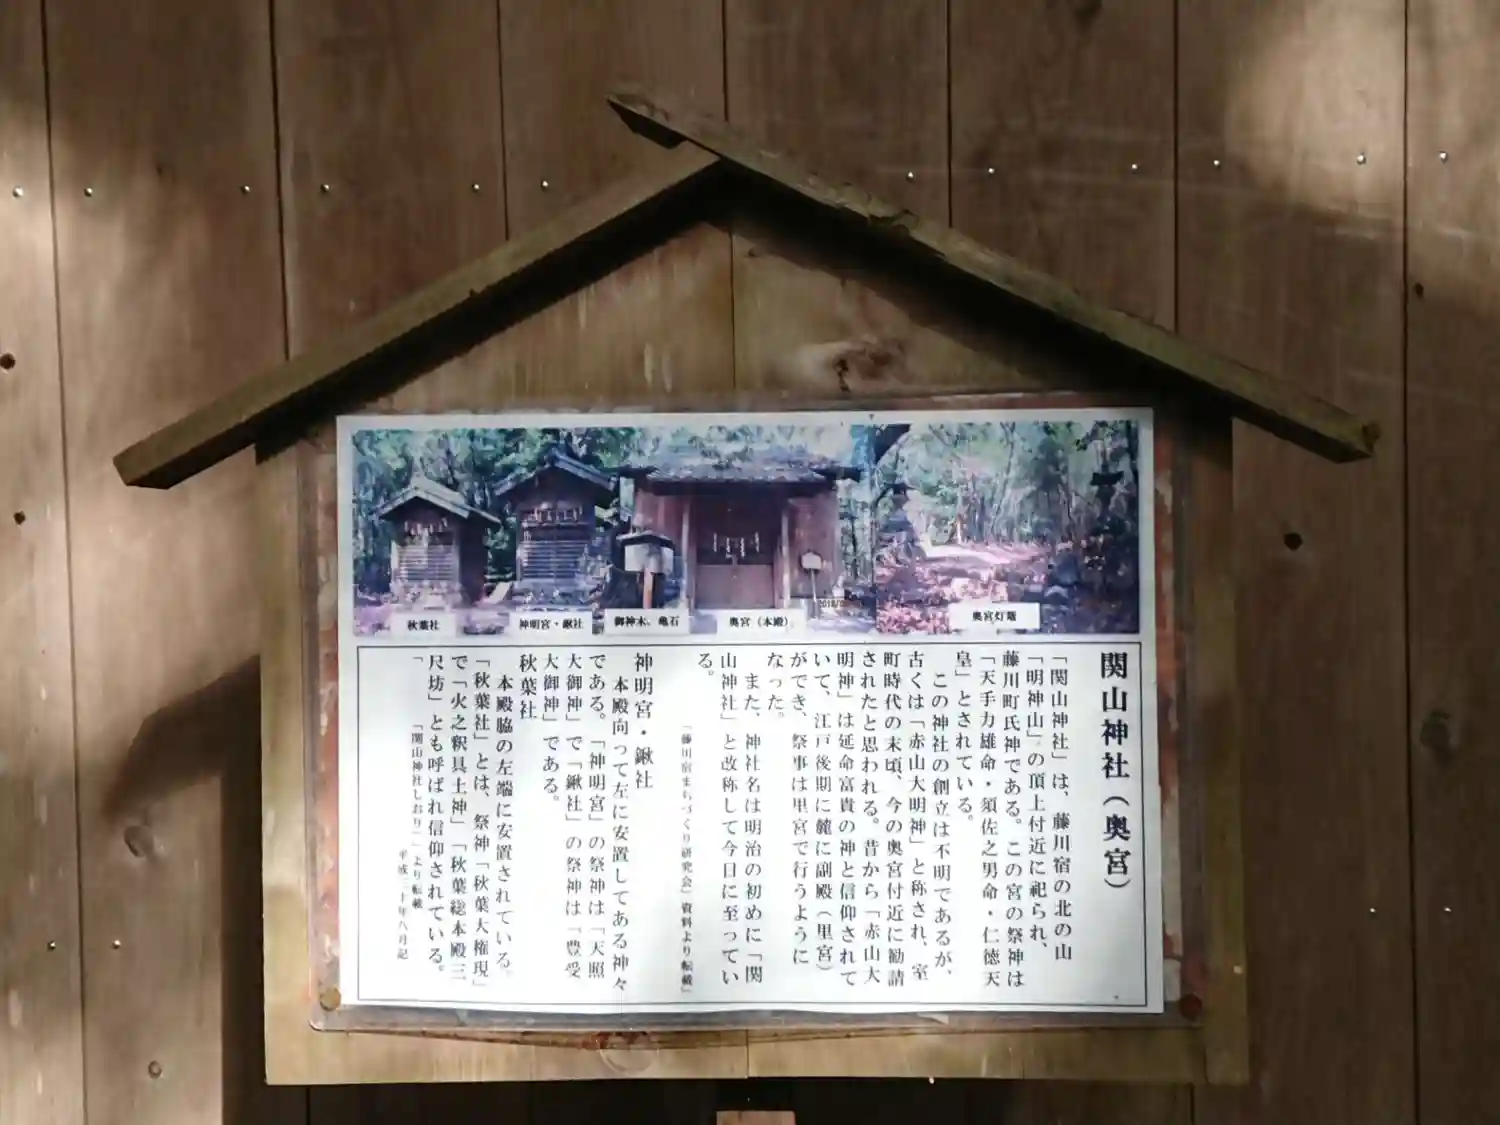 秋葉社
神明宮・鍬社
御神木、亀石
奥宮(本殿)
奥宮灯籠
関山神社(奥宮)
「関山神社」は、藤川宿の北の山
「明神山」の頂上付近に祀られ、
藤川町氏神である。この宮の祭神は
「天手力雄命・須佐之男命・仁徳天
皇」とされている。
この神社の創立は不明であるが、
古くは「赤山大明神」と称され、室
町時代の末頃、今の奥宮付近に勧請
されたと思われる。昔から「赤山大
明神」は延命富貴の神と信仰されて
いて、江戸後期に麓に副殿(里宮)
ができ、祭事は里宮で行うように
なった。
また、神社名は明治の初めに「関
山神社」と改称して今日に至ってい
る。
「藤川宿まちづくり研究会」資料より転載
神明宮・鍬社
本殿向って左に安置してある神々
である。「神明宮」の祭神は「天照
大御神」で「鍬社」の祭神は「豊受
大御神」である。
秋葉社
本殿脇の左端に安置されている。
「秋葉社」とは、祭神「秋葉大権現」
で「火之釈具土神」「秋葉総本殿三
尺坊」とも呼ばれ信仰されている。
「「関山神社しおり」」より転載
平成三十年八月記